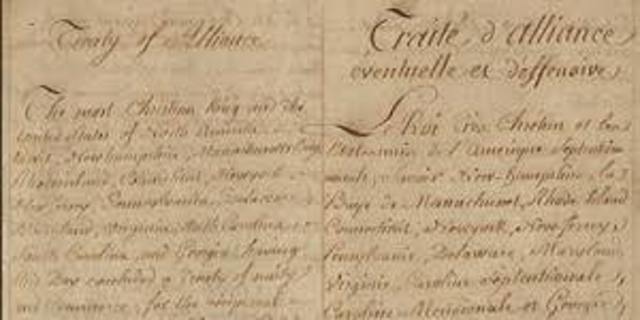 Treaty of Alliance
The most Christian King and the
United States of North America
Newhampshire, Massachusetts Bay
Rhodeisland, Connecticut, Newyork
New Jersey, Pennsylvania, Delaware
Maryland, Virginia, North Carolina,
South Carolina, and Georgia having
this Day concluded a Treaty of amity
and Commerce, for the reciprocal
Traité d'alliance
eventuelle et deffensive
Le Roi très Chrétien et les
Etats unis de l'Amerique Septentrio
nale, savoir New-hampshire, la
Baye de Massachuset, Rhode Island
Connecticut, Newyork, New Jersey,
Pensylvanie, Delaware, Maryland
Virginie, Caroline Septentrionale,
Caroline Meridionale et Georgie,